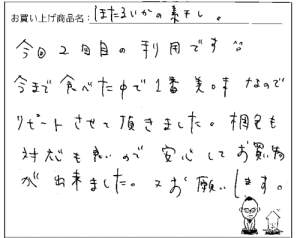 お買い上げ商品名：ほたるいかの素干し。
今回2回目の利用です^^
今まで食べた中で1番美味なので
リピートさせて頂きました。梱包も
対応も良いので安心してお買物
が出来ました。又お願いします。